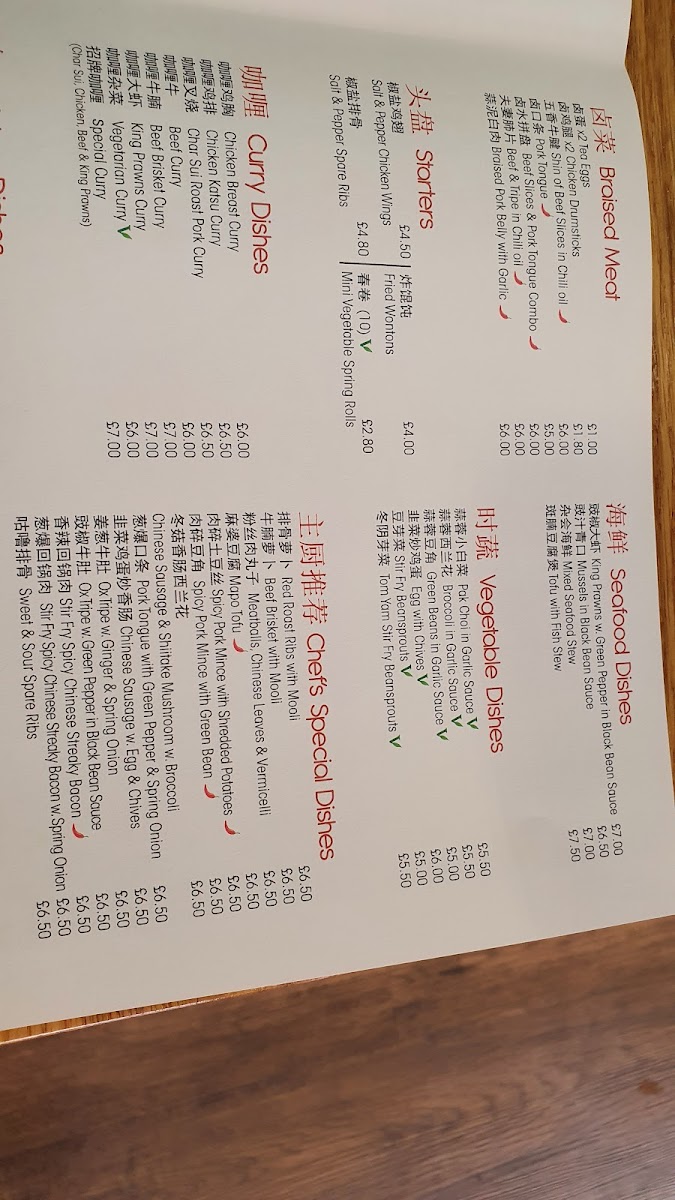 卤菜 Braised Meat
卤蛋 x2 Tea Eggs £1.00
卤鸡腿 x2 Chicken Drumsticks £1.80
五香牛腱 Shin of Beef Slices in Chili oil £6.00
卤口条 Pork Tongue £5.00
卤水拼盘 Beef Slices & Pork Tongue Combo £6.00
夫妻肺片 Beef & Tripe in Chili oil £6.00
蒜泥白肉 Braised Pork Belly with Garlic £6.00
头盘 Starters
椒盐鸡翅 £4.50 炸馄饨 £4.00
Salt & Pepper Chicken Wings Fried Wontons
椒盐排骨 £4.80 春卷 (10) £2.80
Salt & Pepper Spare Ribs Mini Vegetable Spring Rolls
咖喱 Curry Dishes
咖喱鸡胸 Chicken Breast Curry £6.00
咖喱鸡排 Chicken Katsu Curry £6.50
咖喱叉烧 Char Sui Roast Pork Curry £6.50
咖喱牛 Beef Curry £6.00
咖喱牛腩 Beef Brisket Curry £7.00
咖喱大虾 King Prawns Curry £7.00
咖喱杂菜 Vegetarian Curry £6.00
招牌咖喱 Special Curry £7.00
(Char Sui, Chicken, Beef & King Prawns)
海鲜 Seafood Dishes
豉椒大虾 King Prawns w. Green Pepper in Black Bean Sauce £7.00
豉汁青口 Mussels in Black Bean Sauce £6.50
杂会海鲜 Mixed Seafood Stew £7.00
斑腩豆腐煲 Tofu with Fish Stew £7.50
时蔬 Vegetable Dishes
蒜蓉小白菜 Pak Choi in Garlic Sauce £5.50
蒜蓉西兰花 Broccoli in Garlic Sauce £5.50
蒜蓉豆角 Green Beans in Garlic Sauce £5.00
韭菜炒鸡蛋 Egg with Chives £6.00
豆芽菜 Stir Fry Beansprouts £5.00
冬阴芽菜 Tom Yam Stir Fry Beansprouts £5.50
主厨推荐 Chef's Special Dishes
排骨萝卜 Red Roast Ribs with Mooli £6.50
牛腩萝卜 Beef Brisket with Mooli £6.50
粉丝肉丸子 Meatballs, Chinese Leaves & Vermicelli £6.50
麻婆豆腐 Mapo Tofu £6.50
肉碎土豆丝 Spicy Pork Mince with Shredded Potatoes £6.50
肉碎豆角 Spicy Pork Mince with Green Bean £6.50
冬菇香肠西兰花 £6.50
Chinese Sausage & Shiitake Mushroom w. Broccoli
葱爆口条 Pork Tongue with Green Pepper & Spring Onion £6.50
韭菜鸡蛋炒香肠 Chinese Sausage w. Egg & Chives £6.50
姜葱牛肚 Ox Tripe w. Ginger & Spring Onion £6.50
豉椒牛肚 Ox Tripe w. Green Pepper in Black Bean Sauce £6.50
香辣回锅肉 Stir Fry Spicy Chinese Streaky Bacon £6.50
葱爆回锅肉 Stir Fry Spicy Chinese Streaky Bacon w. Spring Onion £6.50
咕噜排骨 Sweet & Sour Spare Ribs £6.50